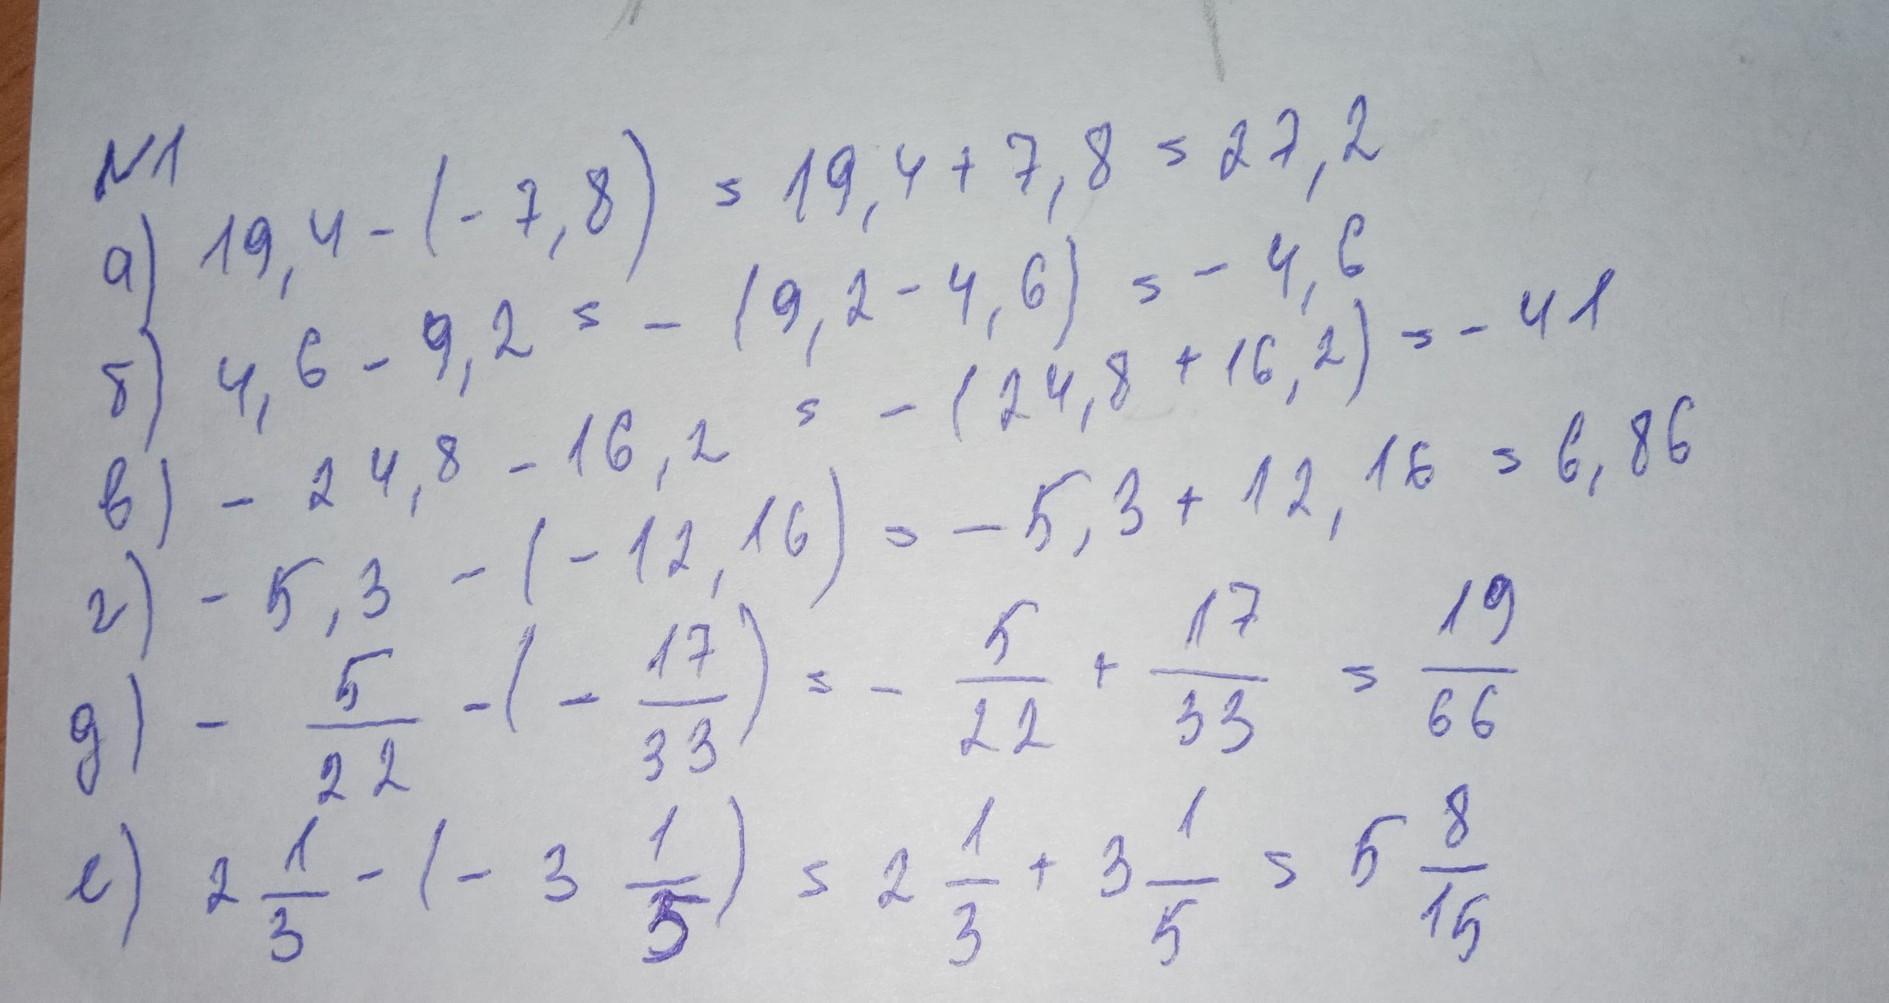 №1
а) 19,4 - (- 7,8) = 19,4 + 7,8 = 27,2
б) 4,6 - 9,2 = - (9,2 - 4,6) = - 4,6
в) - 24,8 - 16,2 = - (24,8 + 16,2) = - 41
г) - 5,3 - (- 12,16) = - 5,3 + 12,16 = 6,86
д) - 5/22 - (- 17/33) = - 5/22 + 17/33 = 19/66
е) 2 1/3 - (- 3 1/5) = 2 1/3 + 3 1/5 = 5 8/15